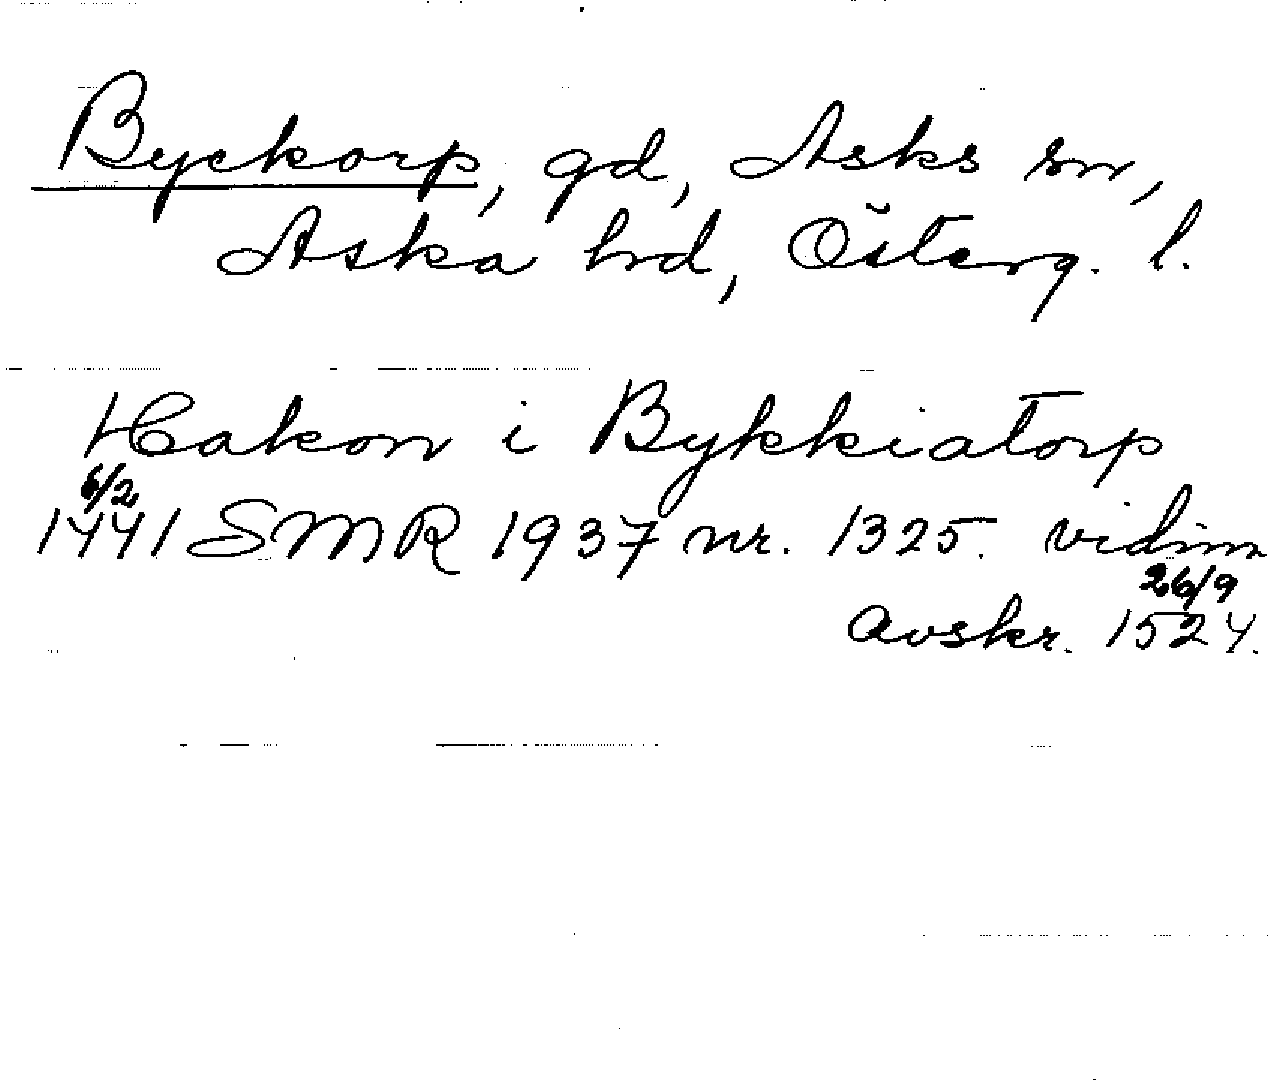 Byckorp, gd, Asks sn,
Aska hrd, Österg. l.
Hakon i Bykkiatorp
6/2
1441 SMR 1937 nr. 1325. vidim
26/9
avskr. 1524.